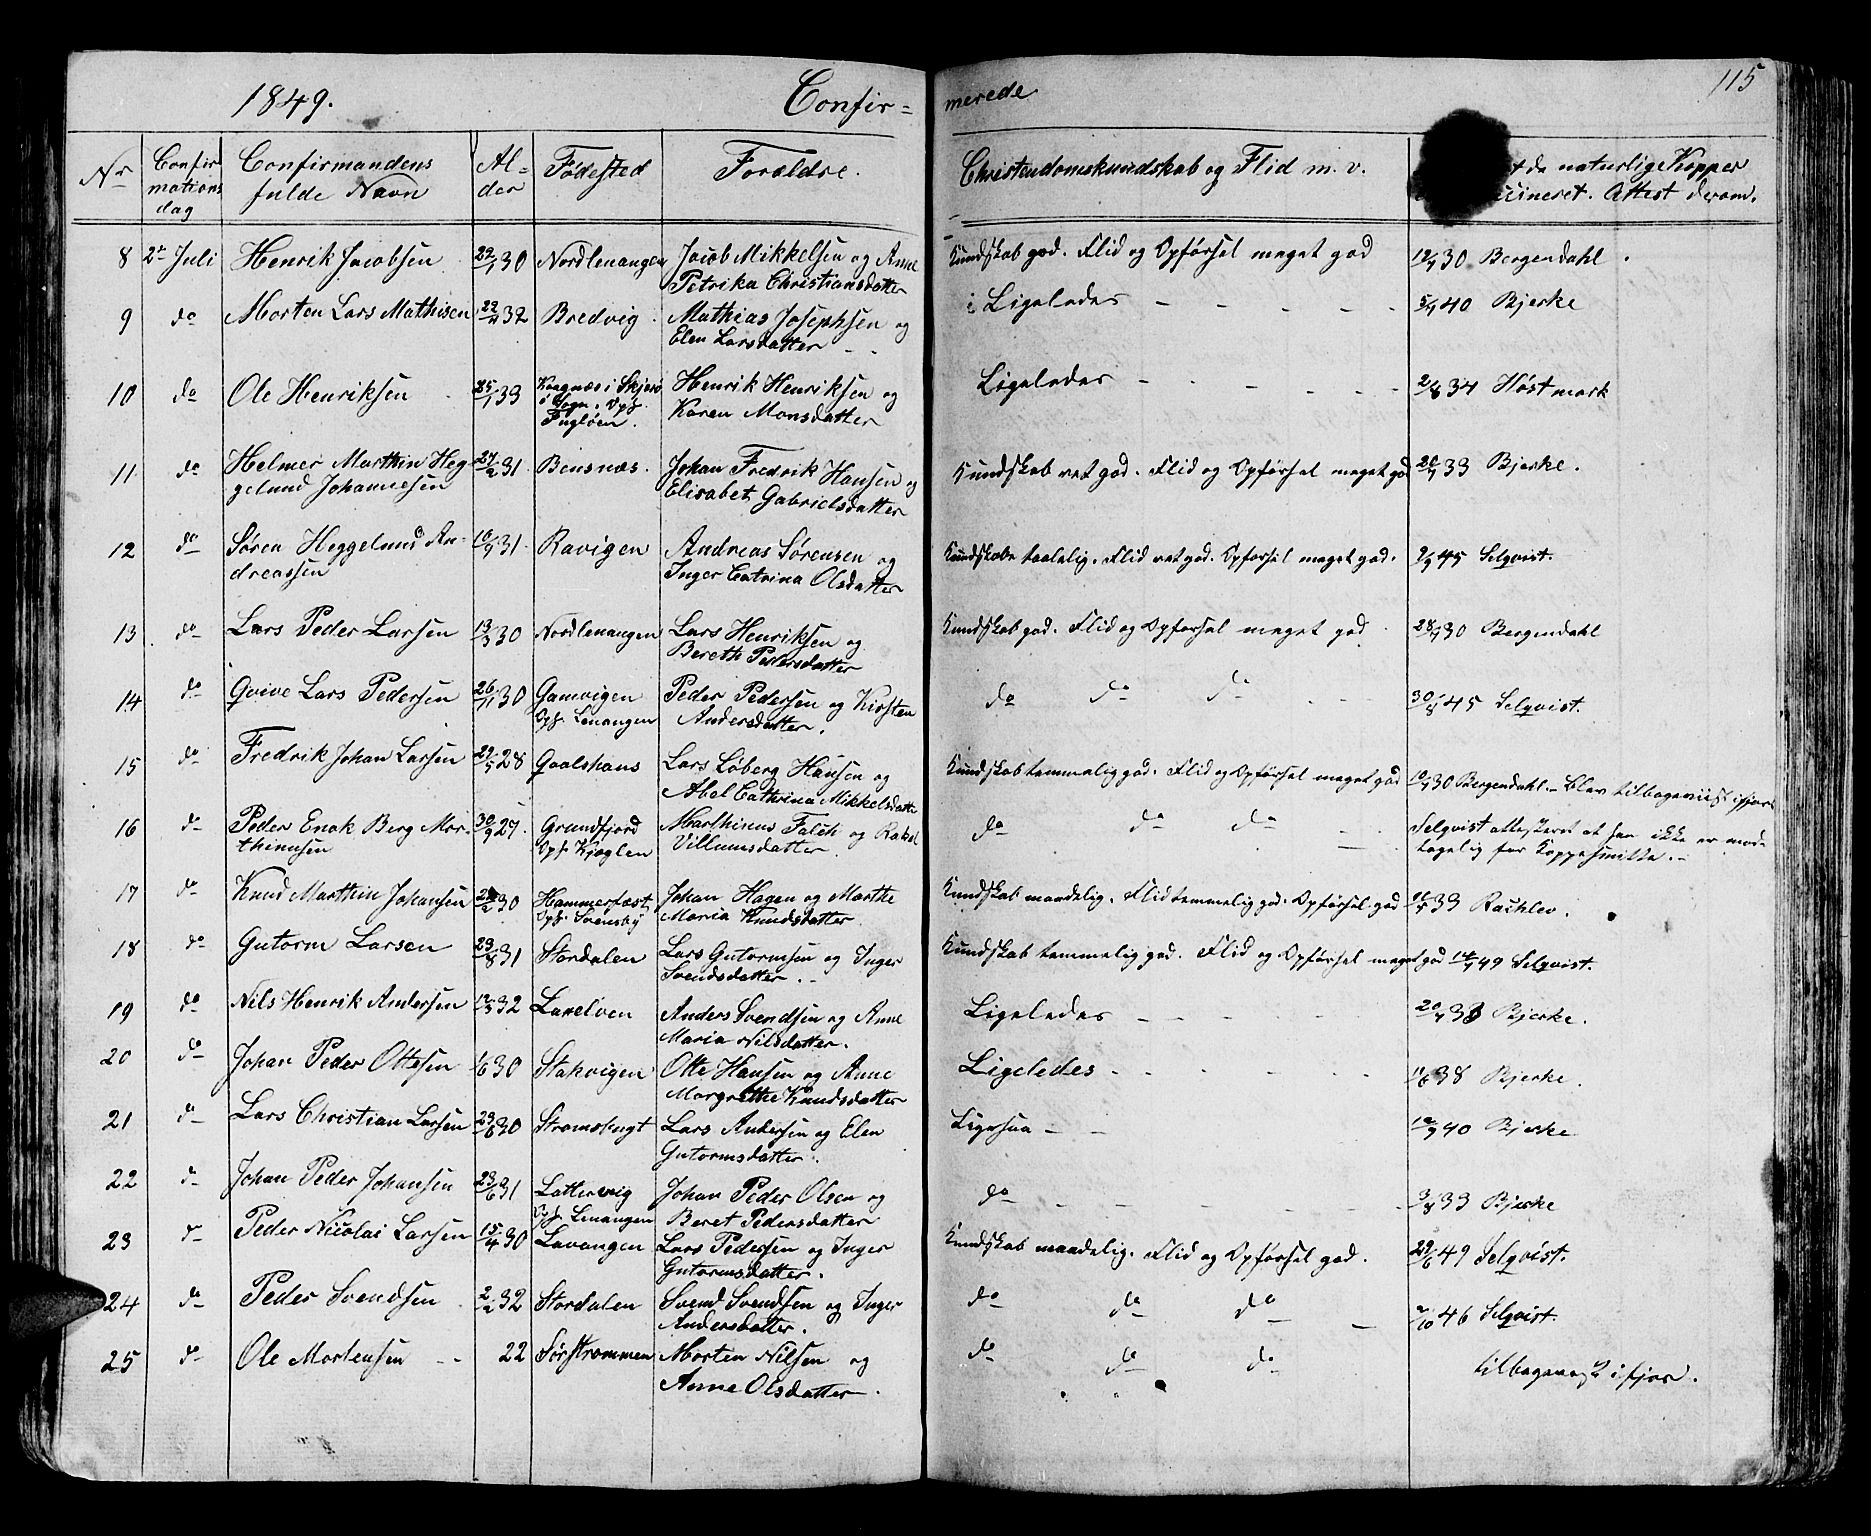 1849. Confir=
merede
115
Nr
Confir
mations
dag
Confirmandens
fulde Navn
Al=
der
Fødested
Forældre.
Christendomskundskab og Flid m. v.
de naturlige Kopper
Attest derom.
8 2n Juli Henrik Jacobsen 22/1 30 Nordlenangen Jacob Mikkelsen og Anne
Petrika Christiansdatter
Kundskab god. Flid og Opførsel meget god 12/7 30 Bergendahl
9 do Morten Lars Mathisen 32 Bredvig Mathias Josephsen og
Elen Larsdatter
Ligeledes - - - - - 5/7 40 Bjerke
10 do Ole Henriksen 25/1 33 Kaagnæs i Skjervø
Sogn. Opf.
Fugløen.
Henrik Henriksen og
Karen Monsdatter
Ligeledes - - - - - 2/8 34 Høstmark
11 do Helmer Marthin Heg
gelund Johannesen
27/2 31. Bensnæs. Johan Fredrik Hansen og
Elisabet Gabrielsdatter
Kundskab ret god. Flid og Opførsel meget god 20/7 33 Bjerke.
12 do Søren Heggelund An-
dreassen
10/9 31. Ravigen Andreas Sørensen og
Inger Catrina Olsdatter
Kundskab taalelig. Flid ret god. Opførsel meget god. 2/9 45 Selqvist.
13 do Lars Peder Larsen 13/3 30 Nordlenangen Lars Henriksen og
Bereth Pedersdatter
Kundskab god. Flid og Opførsel meget god 28/7 30 Bergendahl
14 do Qvive Lars Pedersen 26/11 30 Gamvigen
Opf. Lenangen
Peder Pedersen og Kirsten
Andersdatter.
do do do 30/8 45 Selqvist.
15 do Fredrik Johan Larsen 29/5 28 Gaalshans Lars Løberg Hansen og
Abel Cathrina Mikkelsdatte
Kundskab temmelig god. Flid og Opførsel meget god 10/7 30 Bergendahl. - Blev tilbageviist ifjor
16 do Peder Enok Berg Mar-
thinusen
30/9 27. Grundfjord
Opf. Kjoglen
Marthinus Falch og Rakel
Villumsdatter
do do do - Selqvist attesteret at han ikke er mod-
tagelig for Koppesmitte. -
17 do Knud Marthin Johansen 30 Hammerfæst
Opf. Svensby
Johan Hagen og Marthe
Maria Knudsdatter
Kundskab maadelig. Flid temmelig god. Opførsel god 33 Rachlev.
18 do Gutorm Larsen 23/8 31 Stordalen Lars Gutormsen og Inger
Svendsdatter. -
Kundskab temmelig god. Flid og Opførsel meget god 14/7 49 Selqvist.
19 do Nils Henrik Andersen 12/5 32 Laxelven Anders Svendsen og Anne
Maria Nilsdatter.
Ligeledes - - - - - 20/7 33 Bjerke.
20 do Johan Peder Ottesen 1/6 30 Stakvigen Otte Hansen og Anne
Margrethe Knudsdatter
Ligeledes - - - - - 38 Bjerke.
21 do Lars Christian Larsen 23/6 30 Stromskugt Lars Andersen og Elen
Gutormsdatter.
Ligesaa - - 12/9 40 Bjerke
22 do Johan Peder Johansen 23/6 31 Lattervig
Opf. Lenangen
Johan Peder Olsen og
Beret Pedersdatter
do - - - - - 3/8 33 Bjerke
23 do Peder Nicolai Larsen 15/4 30 Lavangen Lars Pedersen og Inger
Gutormsdatter.
Kundskab maadelig. Flid og Opførsel god. 29/6 49 Selqvist.
24 do Peder Svendsen 2/2 32 Stordalen Svend Svendsen og Inger
Andersdatter.
do do do - 46 Selqvist.
25 do Ole Mortensen - - 22 Sørstrommen Morten Nilsen og
Anne Olsdatter.
do do do tilbagevist i fjor.